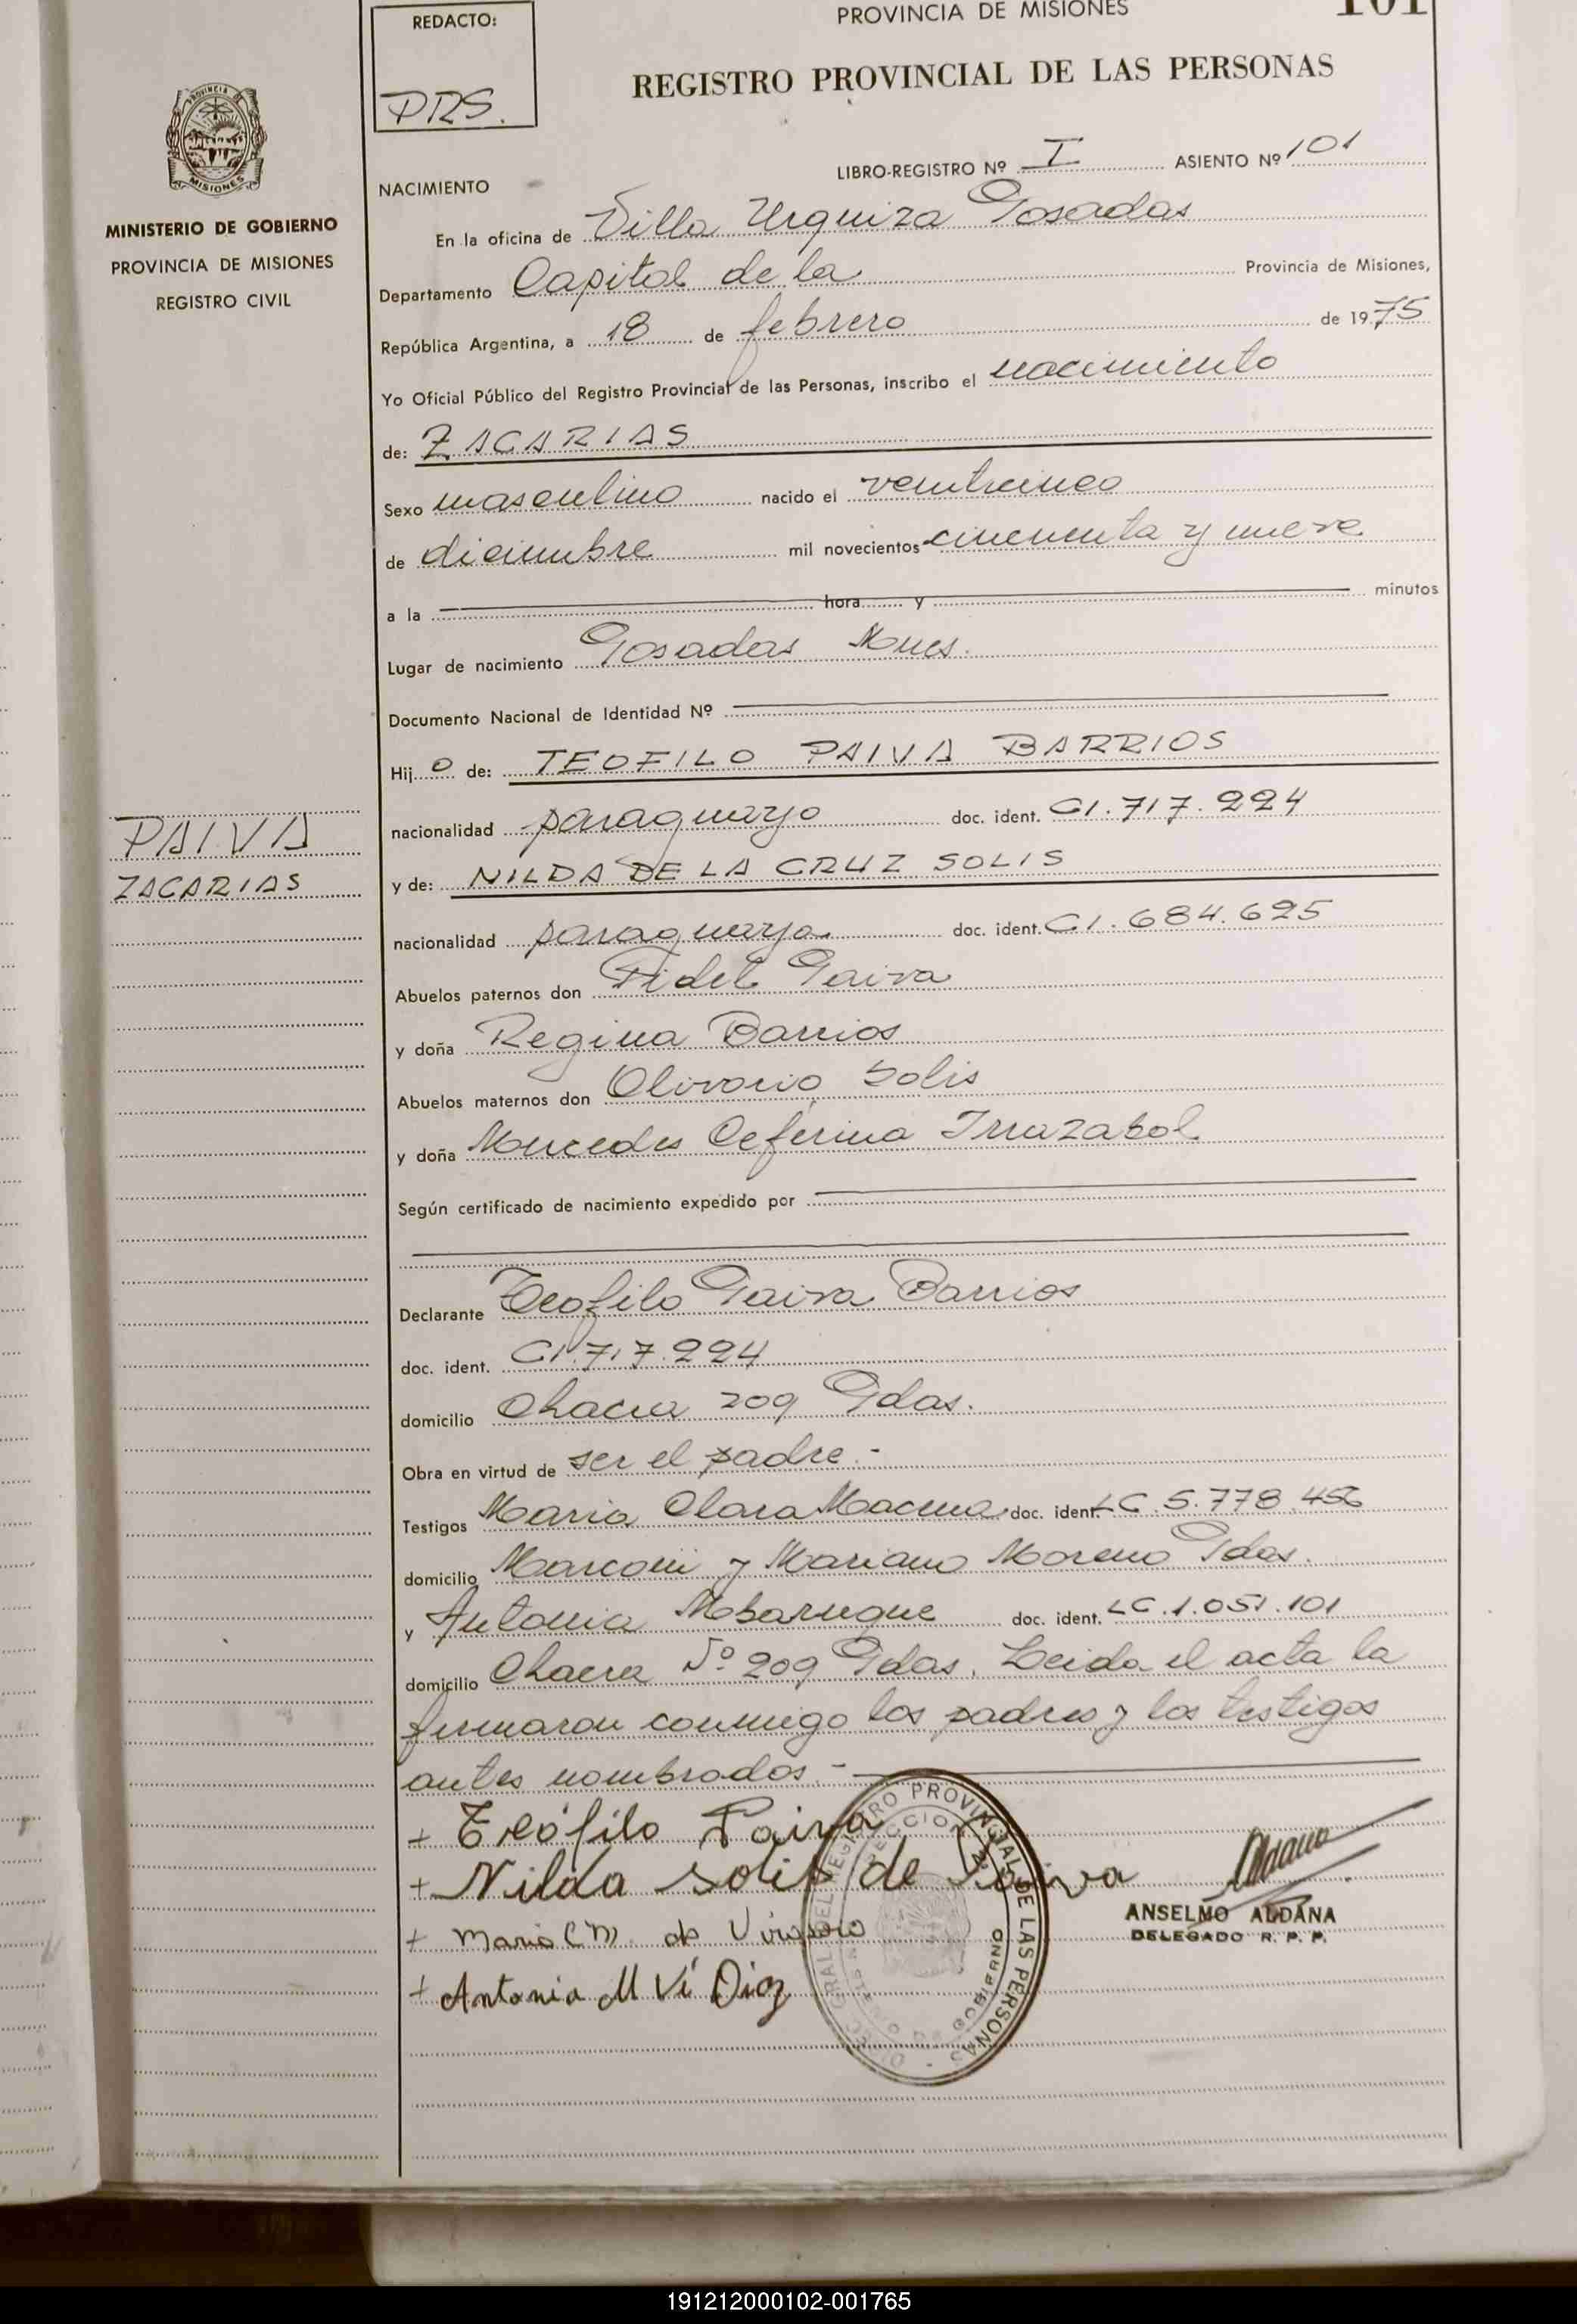 REDACTO:
PRS.
PROVINCIA DE MISIONES
101
REGISTRO PROVINCIAL DE LAS PERSONAS
PROVINCIA DE
MISIONES
MINISTERIO DE GOBIERNO
PROVINCIA DE MISIONES
REGISTRO CIVIL
LIBRO-REGISTRO Nº I ASIENTO Nº 101
NACIMIENTO
En la oficina de Villa Urquiza Posadas
Departamento Capital de la Provincia de Misiones,
República Argentina, a 18 de febrero de 1975
Yo Oficial Público del Registro Provincial de las Personas, inscribo el nacimiento
de: ZACARIAS
Sexo masculino nacido el veinticinco
de diciembre mil novecientos cincuenta y nueve
a la hora y minutos
Lugar de nacimiento Posadas Mnes.
Documento Nacional de Identidad Nº
Hij o de: TEOFILO PAIVA BARRIOS
nacionalidad paraguayo doc. ident. CI. 717.224
PAIVA
ZACARIAS
y de: NILDA DE LA CRUZ SOLIS
nacionalidad paraguaya doc. ident. CI. 684.625
Abuelos paternos don Fidel Paiva
y doña Regina Barrios
Abuelos maternos don Olivorio Solis
y doña Mercedes Ceferina Irrazabal
Según certificado de nacimiento expedido por
Declarante Teofilo Paiva Barrios
doc. ident. CI. 717.224
domicilio Chacra 209 Pdas.
Obra en virtud de ser el padre.-
Testigos Maria Clara doc. ident. LC. 5.778.456
domicilio Marconi y Mariano Moreno Pdas.
y Antonia doc. ident. LC. 1.051.101
domicilio Chacra Nº 209 Pdas. Leida el acta la
firmaron conmigo los padres y los testigos
antes nombrados.-
+ Teófilo Paiva
+ Nilda Solis de Paiva
+ Maria C M. de
+ Antonia M Vi Diaz
DEL REGISTRO PROVINCIAL DE LAS PERSONAS
ANSELMO ALDANA
DELEGADO R. P. P.
191212000102-001765